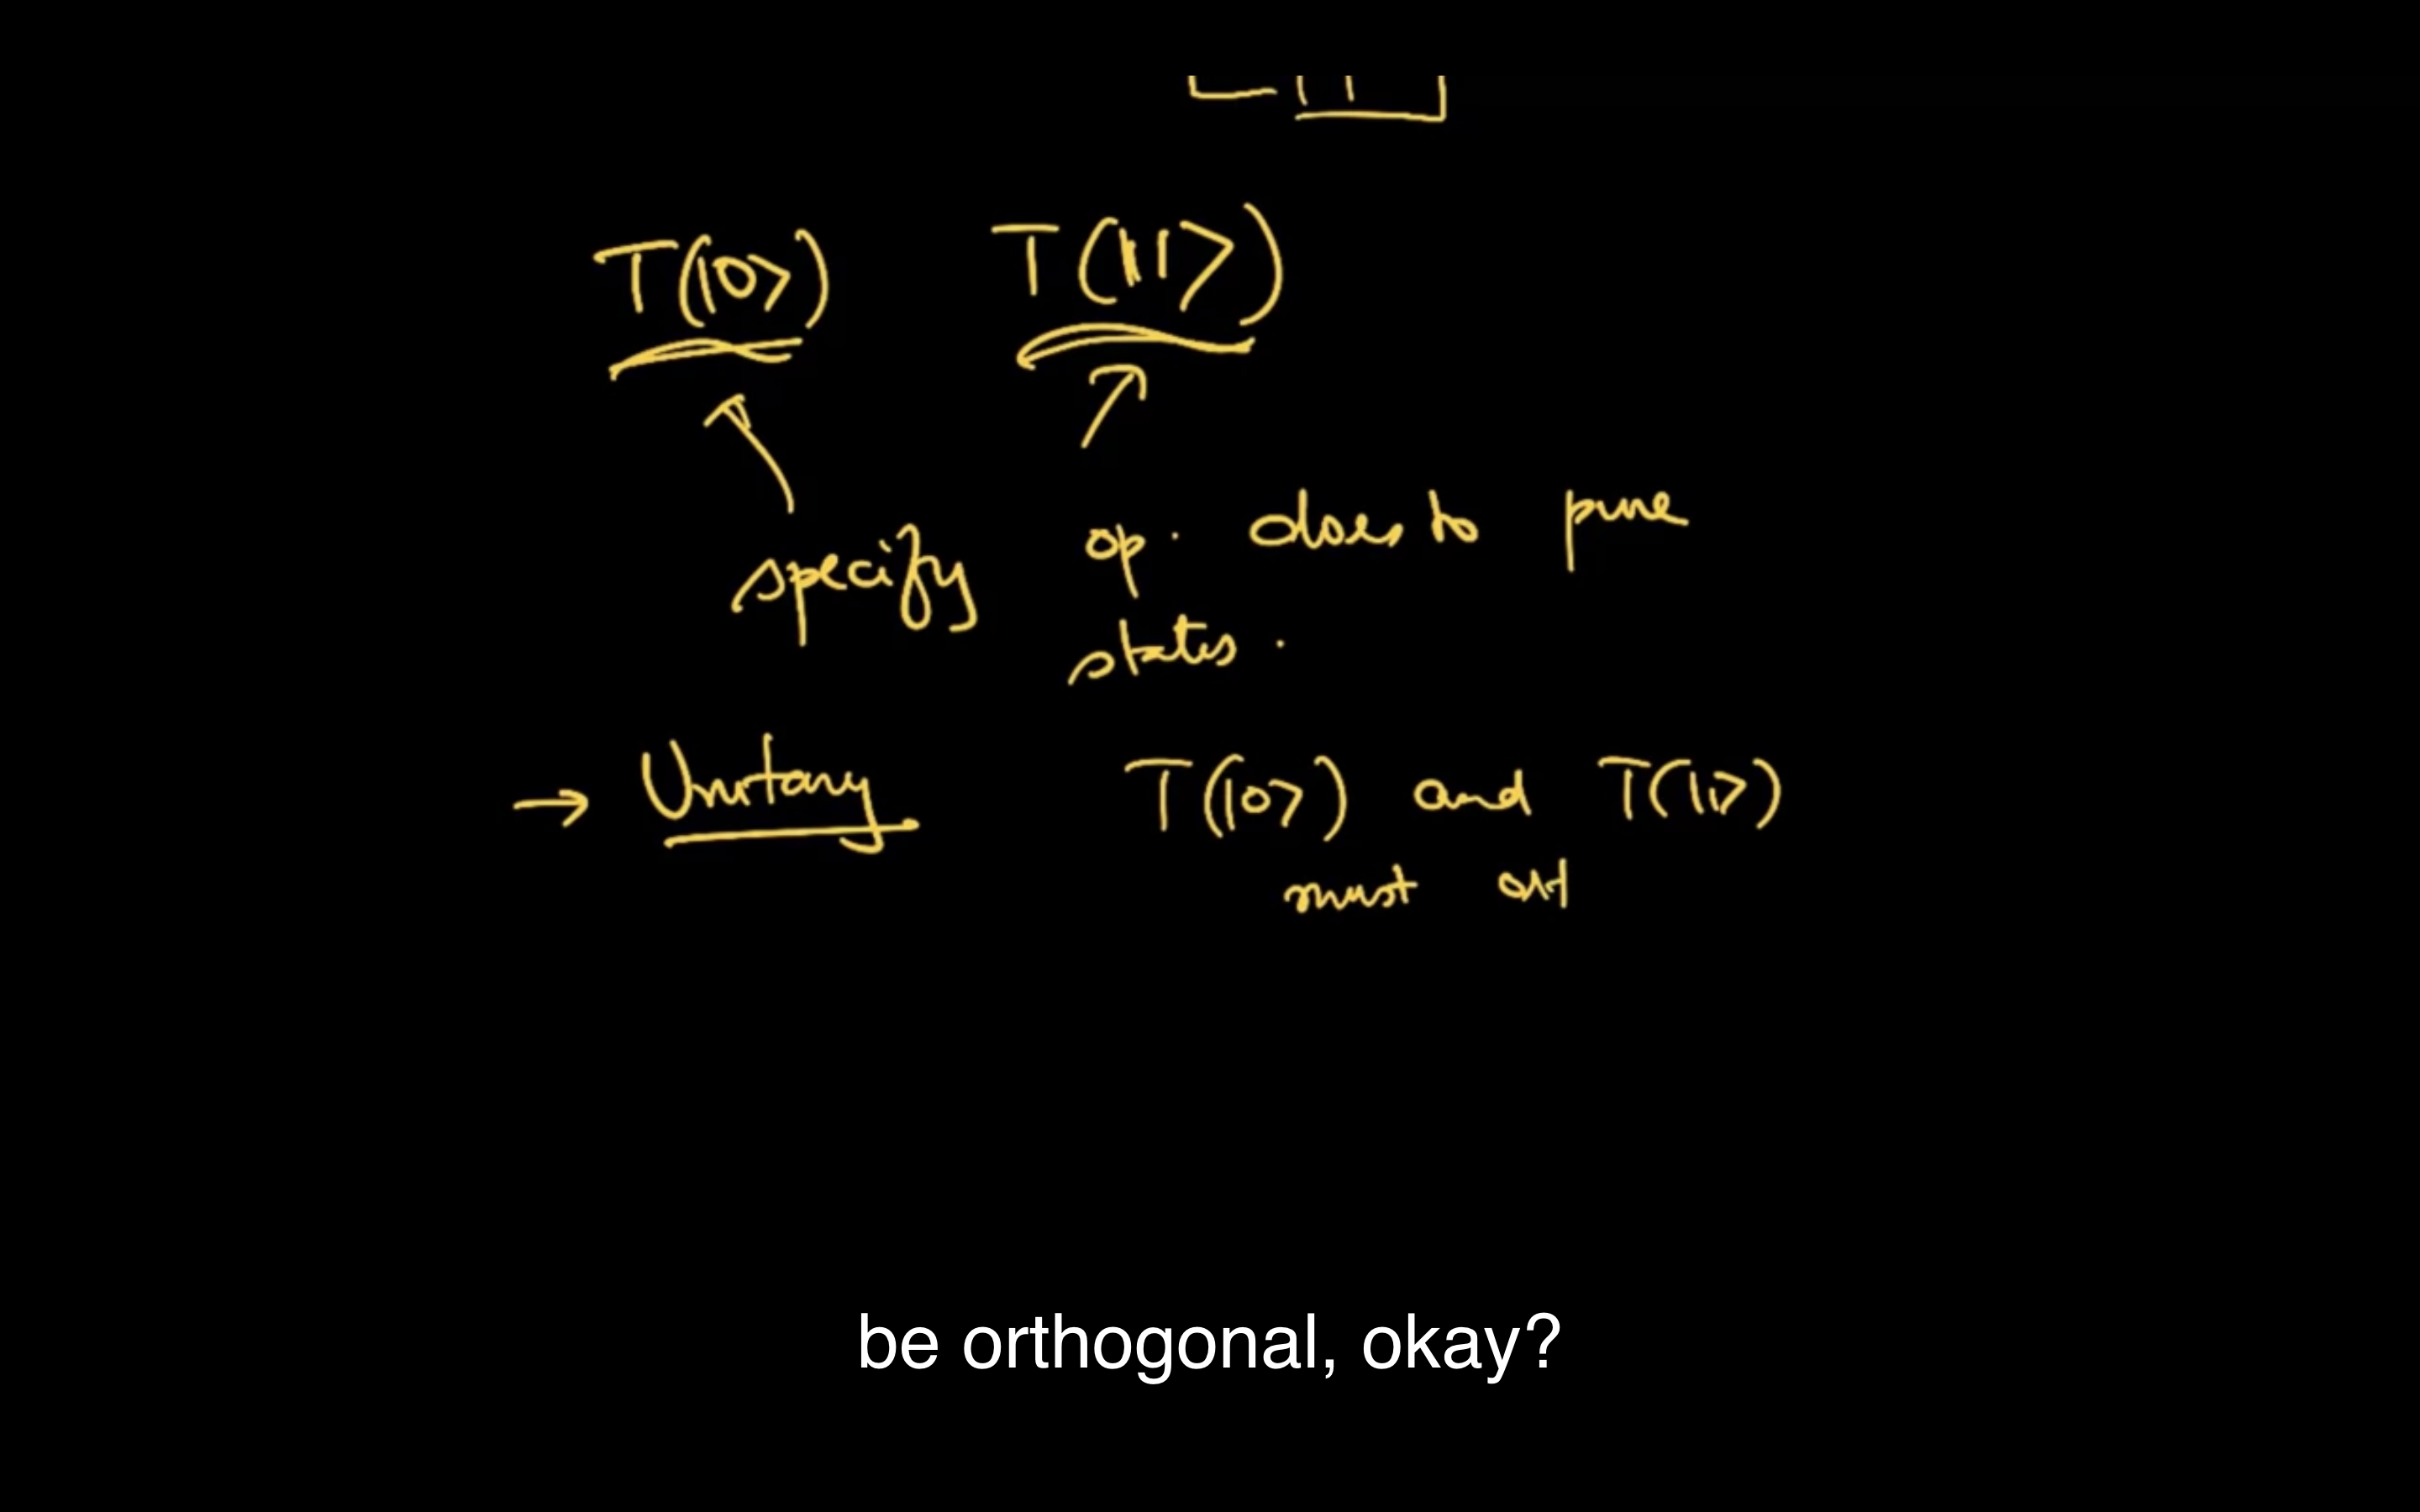 T(|0⟩) T(|1⟩)
specify op. does to pure
states.
→ Unitary T(|0⟩) and T(|1⟩)
must
be orthogonal, okay?